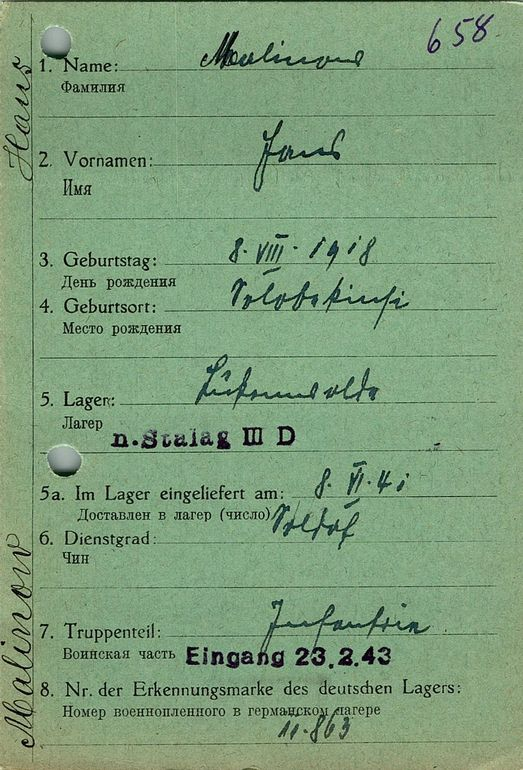 658
1. Name: Malinow
Фамилия
2. Vornamen: Hans
Имя
3. Geburtstag: 8. VIII. 1918
День рождения
4. Geburtsort:
Место рождения
5. Lager: Lückenwalde
Лагер
n. Stalag III D
5a. Im Lager eingeliefert am: 8. VI. 41
Доставлен в лагер (число)
6. Dienstgrad: Soldat
Чин
7. Truppenteil: Infantrie
Воинская часть Eingang 23.2.43
8. Nr. der Erkennungsmarke des deutschen Lagers:
Номер военнопленного в германском лагере
11-863
Malinow Hans